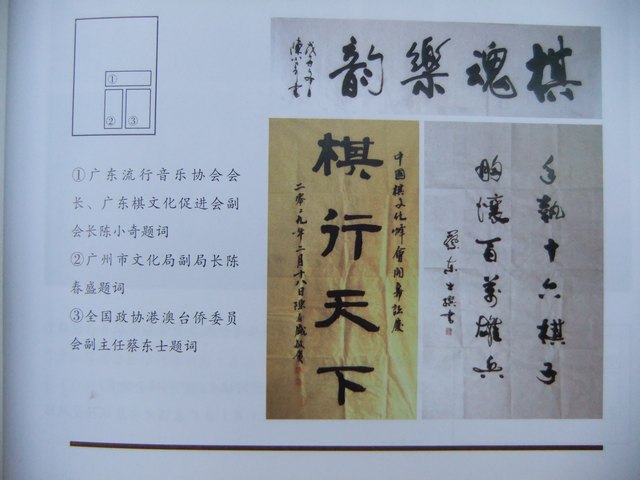 ①
② ③
①广东流行音乐协会会
长、广东棋文化促进会副
会长陈小奇题词
②广州市文化局副局长陈
春盛题词
③全国政协港澳台侨委员
会副主任蔡东士题词
棋魂樂韵
陳小奇書
中國棋文化峰會開幕誌慶
棋行天下
九年二月十八日陳春盛敬賀
手執十六棋子
胸懷百萬雄兵
蔡東士撰書